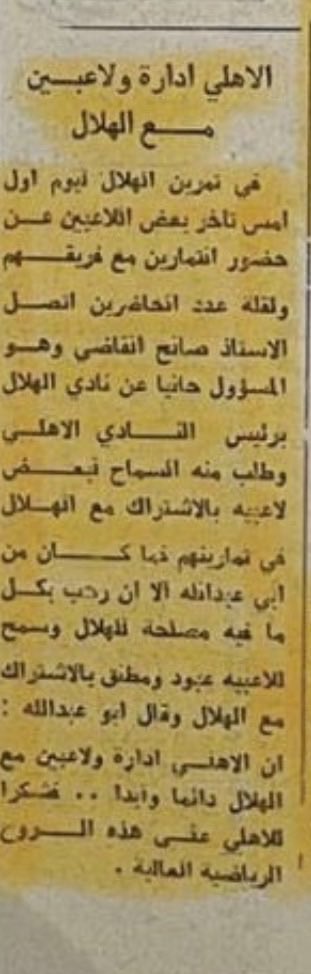 الاهلي ادارة ولاعبين
مع الهلال
في تمرين الهلال ليوم اول
امس تأخر بعض اللاعبين عن
حضور التمارين مع فريقهم
ولقلة عدد الحاضرين اتصل
الاستاذ صالح القاضي وهو
المسؤول حاليا عن نادي الهلال
برئيس النادي الاهلي
وطلب منه السماح لبعض
لاعبيه بالاشتراك مع الهلال
في تمارينهم فما كان من
ابي عبدالله الا ان رحب بكل
ما فيه مصلحة للهلال وسمح
للاعبيه عبود ومطلق بالاشتراك
مع الهلال وقال ابو عبدالله :
ان الاهلي ادارة ولاعبين مع
الهلال دائما وابدا .. فشكرا
للاهلي على هذه الروح
الرياضية العالية .